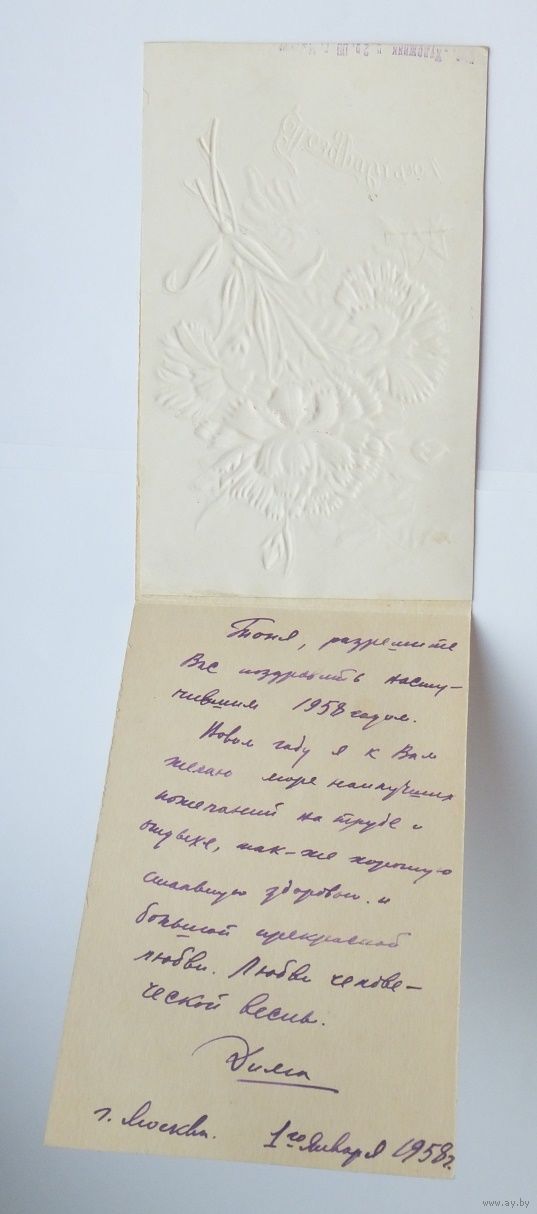 Поздравляю!
Тоня, разрешите
Вас поздравить насту-
пившим 1958 годом.
Новом году я к Вам
желаю море наилучших
пожеланий на труде и
отдыхе, так-же хорошую
здоровью. и
большой прекрасной
любви. Любви челове-
ческой весны.
Дима
г. Москва. 1го января 1958 г.
www.ay.by